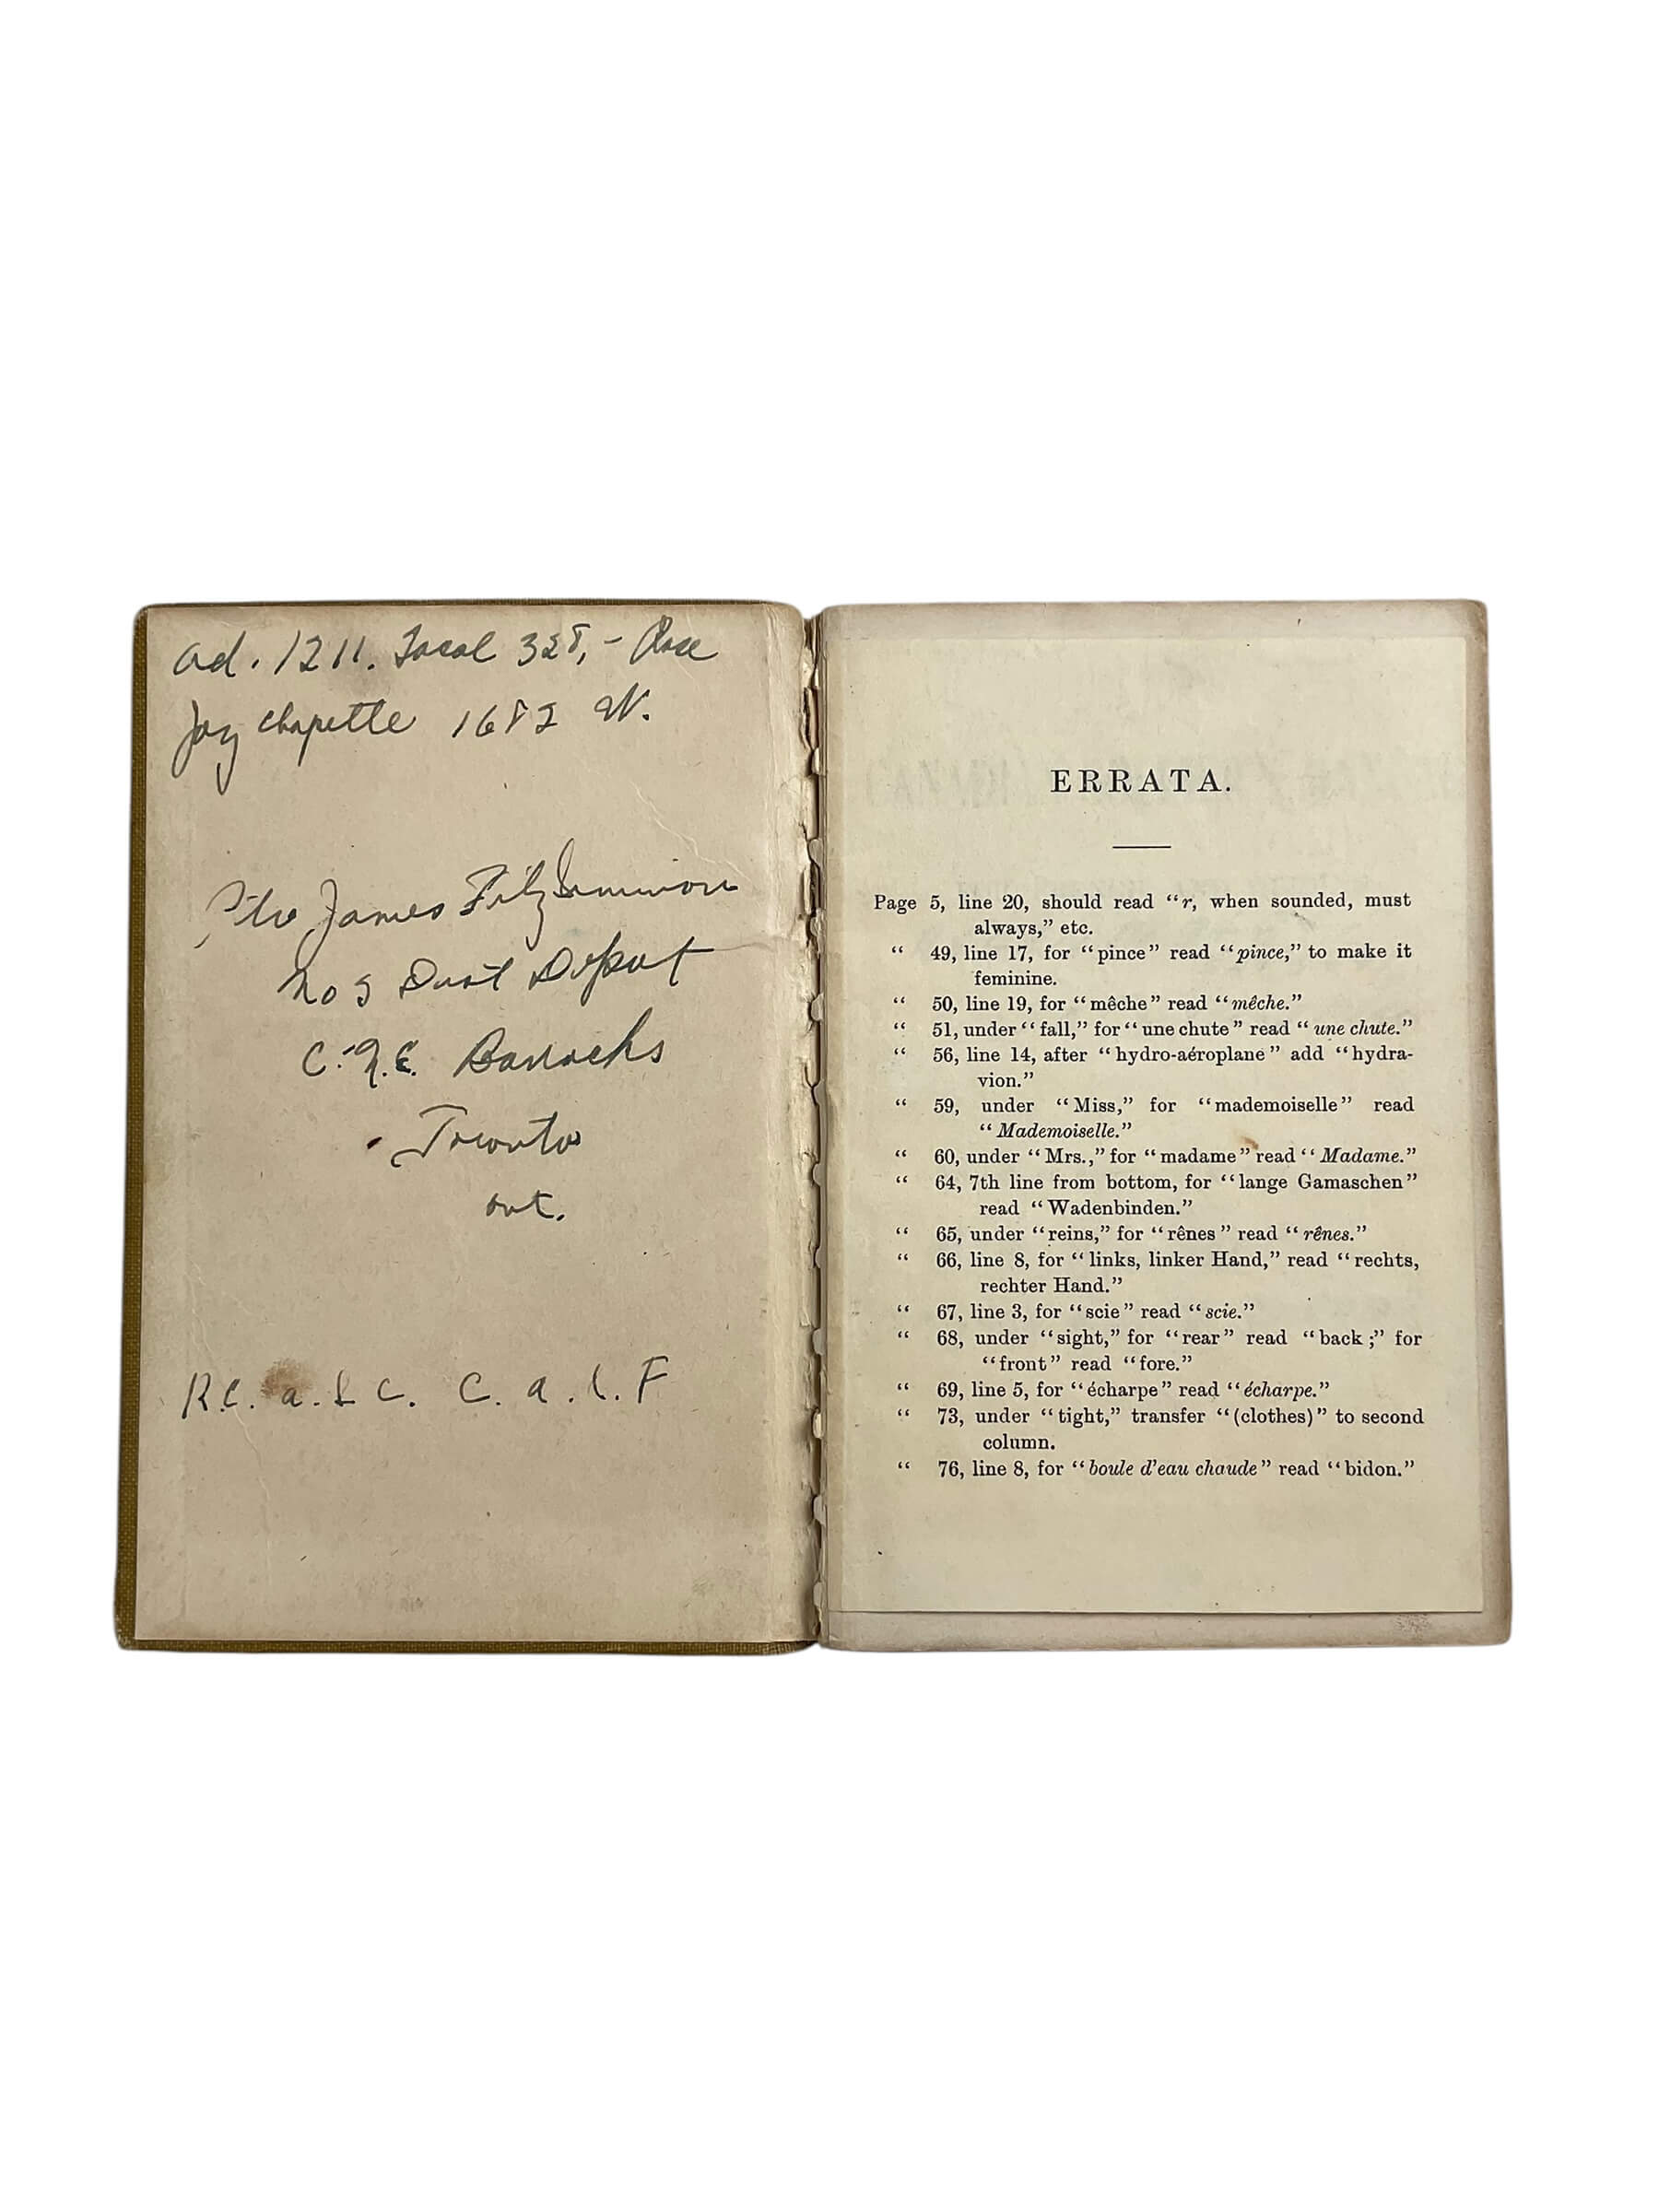 Ad. 1211. Local 328, - Rose
Joy Chapelle 1682 W.
Pte James Fitzsimmons
No 2 Dist Depot
C.N.E. Barracks
Toronto
Ont.
R.C.A.S.C. C.A.S.F
ERRATA.
Page 5, line 20, should read “r, when sounded, must
always,” etc.
“ 49, line 17, for “pince” read “pince,” to make it
feminine.
“ 50, line 19, for “mêche” read “mêche.”
“ 51, under “fall,” for “une chute” read “une chute.”
“ 56, line 14, after “hydro-aéroplane” add “hydra-
vion.”
“ 59, under “Miss,” for “mademoiselle” read
“Mademoiselle.”
“ 60, under “Mrs.,” for “madame” read “Madame.”
“ 64, 7th line from bottom, for “lange Gamaschen”
read “Wadenbinden.”
“ 65, under “reins,” for “rênes” read “rênes.”
“ 66, line 8, for “links, linker Hand,” read “rechts,
rechter Hand.”
“ 67, line 3, for “scie” read “scie.”
“ 68, under “sight,” for “rear” read “back;” for
“front” read “fore.”
“ 69, line 5, for “écharpe” read “écharpe.”
“ 73, under “tight,” transfer “(clothes)” to second
column.
“ 76, line 8, for “boule d'eau chaude” read “bidon.”